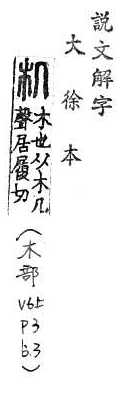 説文解字
大徐本
机 木也从木几
聲居履切
(木部
V6上
P3
b.3)